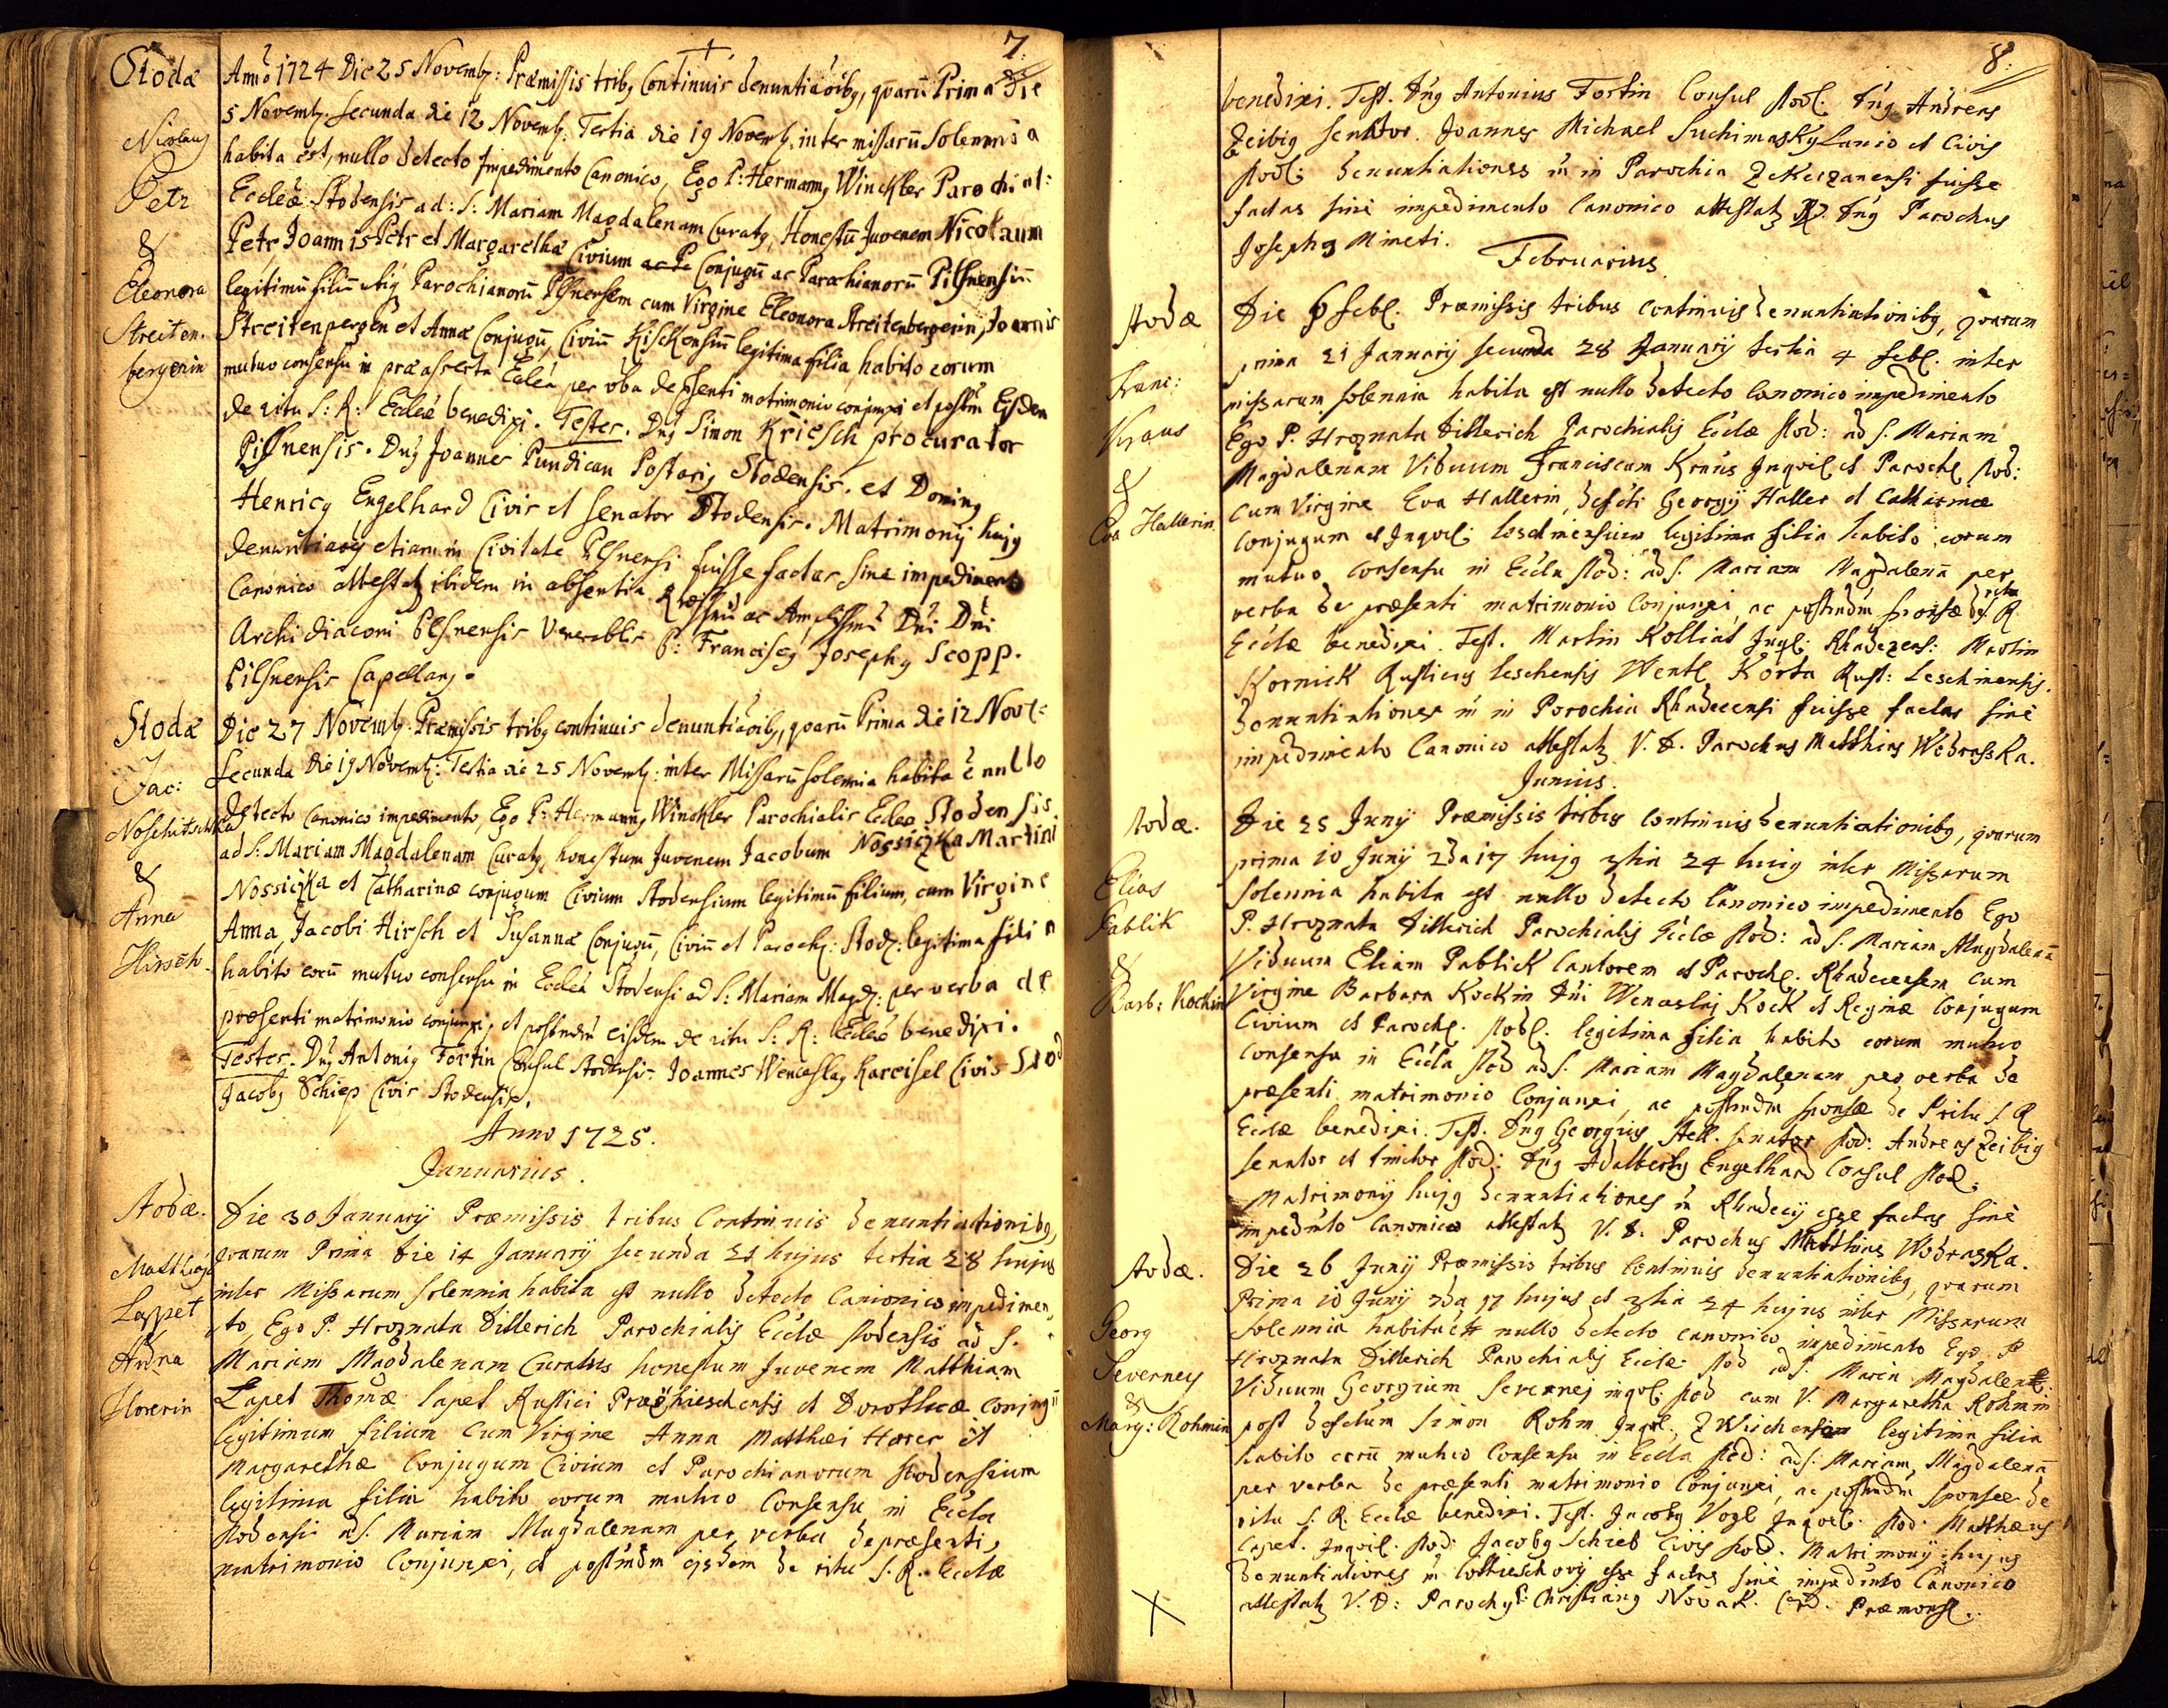 7.
Stodæ
Nicolaus
Petz
&
Eleonora
Streiten.
bergerin
Anno 1724 Die 25 Novemb: Præmissis tribq Continuis denuntiaõibq, quarũ Prima Die
5 Novemb: Secunda die 12 Novemb: Tertia die 19 Novemb: inter missarũ Solemnia
habita est, nullo detecto Impedimento Canonico, Ego P: Hermannq Winckler Parochial:
Ecclæ Stodensis ad: S: Mariam Magdalenam Curatq, Honestũ Juvenem Nicolaum
Petz Joannis Petz et Margarethæ Civium ac Pa Conjugũ ac Parochianorũ Pilsnensiũ
legitimũ filiũ Parochianorũ Pilsnensem cum Virgine Eleonora Streitenbergerin, Joannis
Streitenpergen et Annæ Conjugũ, Civiũ Kischensiũ legitima filia, habito eorum
mutuo consensu in præasserta Ecclã per vba de psenti matrimonio conjunxi et postm̃ Eisdem
de ritu S: R: Ecclæ benedixi. Testes. Dnq Simon Kriesch procurator
Pilsnensis. Dnq Joannes Pundican Postariq Stodensis. et Dominq
Henricq Engelhard Civis et Senator Stodensis. Matrimonij hujq
denuntiaões etiam in Civitate Plsnensi fuisse factas sine impedimento
Canonico attestatq ibidem in absentia Rssimi ac Amplissmi Dni Dni
Archidiaconi Plsnensis Venerablis P: Franciscq Josephq Scopp.
Pilsnensis Capellanq.
Stodæ
Jac:
Noschitschka
&
Anna
Hirsch
Die 27 Novemb: Præmissis tribq continuis denuntiaõibq, quarũ Prima die 12 Nov:
Secunda die 19 Novemb: Tertia die 25 Novemb: inter Missarũ solemnia habita ẽ nullo
detecto Canonico impedimento, Ego P: Hermannq Winckler Parochialis Ecclæ Stodensis
ad S: Mariam Magdalenam Curatq, honestum Juvenem Jacobum Nossiczka Martini
Nossiczka et Catharinæ conjugum Civium Stodensium legitimũ filium, cum Virgine
Anna, Jacobi Hirsch et Susannæ Conjugũ, Civiũ et Paroch: Stod: legitima filia
habito eorũ mutuo consensu in Ecclã Stodensi ad S: Mariam Magd: per verba de
præsenti matrimonio conjunxi, et postmodm̃ eisdem de ritu S: R: Ecclæ benedixi.
Testes. Dnq Antoniq Fortin Consul Stodensis. Joannes Wenceslaq Kareisel Civis Stod
Jacobq Schiep Civis Stodensis.
Anno 1725.
Januarius.
Stodæ.
Matthias
Lappet
&
Anna
Horerin
Die 30 Januarij Præmissis tribus Continuis denuntiationibq,
quarum Prima Die 14 Januarij secunda 21 hujus tertia 28 hujus
inter Missarum solennia habita est nullo detecto Canonico impedimen,
,to, Ego P. Hroznata Dillerich Parochialis Ecclæ Stodensis ad S.
Mariam Magdalenam Curatus honestum Juvenem Matthiam
Lapet Thomæ Lapet Rustici et Dorotheæ Conjugũ
legitimum filium Cum Virgine Anna Matthæi Horer et
Margarethæ Conjugum Civium et Parochianorum Stodensium
legitima filia habito eorum mutuo Consensu in Eccla
Stodensi ad S. Mariam Magdalenam per verba de præsenti,
matrimonio Conjunxi, et postmdm eisdem de ritu S. R. Ecclæ
8.
benedixi. Test. Dnq Antonius Fortin Consul Stod. Dnq Andreas
Zeibig senator. Joannes Michael Suchimasky Lanio et Civis
Stod: denuntiationes in Parochia Zekuzanensi fuisse
factas sine impedimento Canonico attestatq R. Dnq Parochus
Josephq Mineti.
Februarius
Stodæ
Franc:
Kraus
&
Eva Hallerin.
Die 6 Feb. Præmissis tribus continuis denuntiationibq, quarum
prima 21 Januarij secunda 28 Januarij tertia 4 Feb. inter
missarum solennia habita est nullo detecto canonico impedimento
Ego P. Hroznata Dillerich Parochialis Ecclæ Stod: ad S. Mariam
Magdalenam Viduum Franciscum Kraus Inquil. et Paroch. Stod:
cum Virgine Eva Hallerin, defcti Georgij Haller et Catharinæ
Conjugum et Inquil: legitima filia habito eorum
mutuo consensu in Eccla Stod: ad S. Mariam Magdalenã per
verba de præsenti matrimonio Conjunxi, ac postmdm sponsæ de ritu S. R.
Ecclæ benedixi. Test. Martin Kollias Inql. Rhadezens: Martin
Kornick Rusticus Leschensis Wentl Korta Rust: Leschinensis.
denuntiationes in Parochia Rhadecensi fuisse factas sine
impedimento Canonico attestatq V. D. Parochus Matthias Wodrasska.
Junius.
Stodæ.
Elias
Pablik
&
Barb: Kockin
Die 25 Junij Præmissis tribus continuis denuntiationibq, quarum
prima 10 Junij 2da 17 hujq 3tia 24 hujq inter Missarum
solennia habita est nullo detecto Canonico impedimento Ego
P. Hroznata Dillerich Parochialis Ecclæ Stod: ad S. Mariam Magdalenã
Viduum Eliam Pablick Cantorem et Paroch. Rhadecensem cum
Virgine Barbara Kockin Dni Wenceslai Kock et Reginæ Conjugum
Civium et Paroch. Stod. legitima filia habito eorum mutuo
consensu in Eccla Stod ad S. Mariam Magdalenam per verba de
præsenti matrimonio Conjunxi, ac postmdm sponsæ de Ritu S. R
Ecclæ benedixi. Test. Dnq Georgius Stell. senator Stod: Andreas Zeibig
senator et tinctor Stod: Dnq Adalbertq Engelhard Consul Stod.
Matrimonij hujq denuntiationes in Rhadecij esse factas sine
impedmto Canonico attestatq V. D. Parochus Matthias Wodraska.
Stodæ.
Georg
Severney
&
Marg: Rohmin
Die 26 Junij Præmissis tribus Continuis denuntiationibq, quarum
Prima 10 Junij 2da 17 hujus et 3tia 24 hujus inter Missarum
solennia habita est nullo detecto canonico impedimento Ego P
Hroznata Dillerich Parochialis Ecclæ Stod ad S. Maria Magdalen:
Viduum Georgium Severnej inqvl. Stod cum V. Margaretha Rohmin
post defctum Simon Rohm Inqvl. legitima filia
habito eorũ mutuo Consensu in Eccla Stod: ad S. Mariam Magdalenã
per verba de præsenti matrimonio Conjunxi, ac postmdm sponsæ de
ritu S. R. Ecclæ benedixi. Test. Jacobq Vogl Inquil. Stod. Matthæus
Lapet. Inquil. Stod: Jacobq Schieb Civis Stod. Matrimonij hujus
denuntiationes in esse factas sine impedmto Canonico
attestatq V. D: Parochq P. Christianq Novak. Præmonst.
X